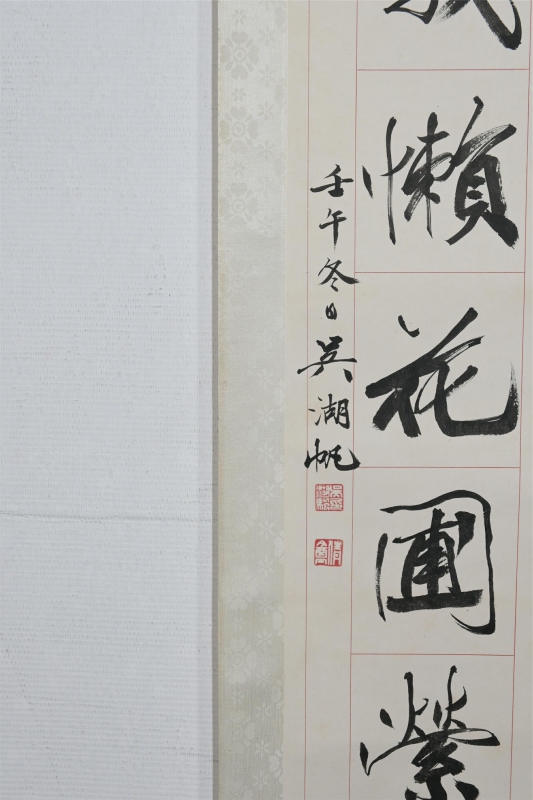 懶花圃縈
壬午冬日吳湖帆